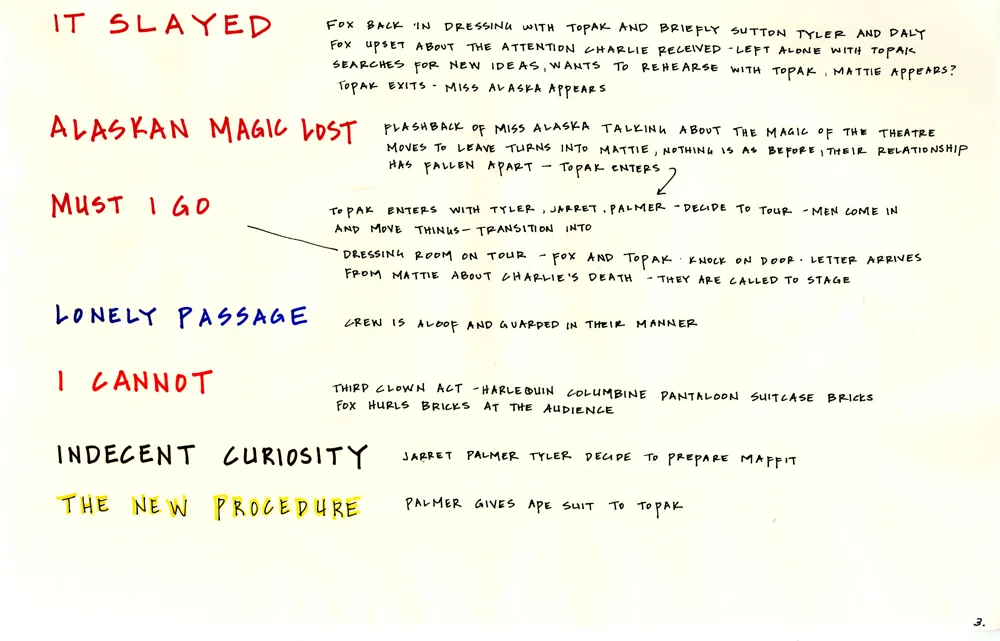 IT SLAYED
FOX BACK IN DRESSING WITH TOPAK AND BRIEFLY SUTTON TYLER AND DALY
FOX UPSET ABOUT THE ATTENTION CHARLIE RECEIVED - LEFT ALONE WITH TOPAK
SEARCHES FOR NEW IDEAS, WANTS TO REHEARSE WITH TOPAK, MATTIE APPEARS?
TOPAK EXITS - MISS ALASKA APPEARS
ALASKAN MAGIC LOST
FLASHBACK OF MISS ALASKA TALKING ABOUT THE MAGIC OF THE THEATRE
MOVES TO LEAVE TURNS INTO MATTIE, NOTHING IS AS BEFORE, THEIR RELATIONSHIP
HAS FALLEN APART - TOPAK ENTERS
MUST I GO
TOPAK ENTERS WITH TYLER, JARRET, PALMER - DECIDE TO TOUR - MEN COME IN
AND MOVE THINGS - TRANSITION INTO
DRESSING ROOM ON TOUR - FOX AND TOPAK · KNOCK ON DOOR · LETTER ARRIVES
FROM MATTIE ABOUT CHARLIE'S DEATH - THEY ARE CALLED TO STAGE
LONELY PASSAGE
CREW IS ALOOF AND GUARDED IN THEIR MANNER
I CANNOT
THIRD CLOWN ACT - HARLEQUIN COLUMBINE PANTALOON SUITCASE BRICKS
FOX HURLS BRICKS AT THE AUDIENCE
INDECENT CURIOSITY
JARRET PALMER TYLER DECIDE TO PREPARE MAFFIT
THE NEW PROCEDURE
PALMER GIVES APE SUIT TO TOPAK
3.